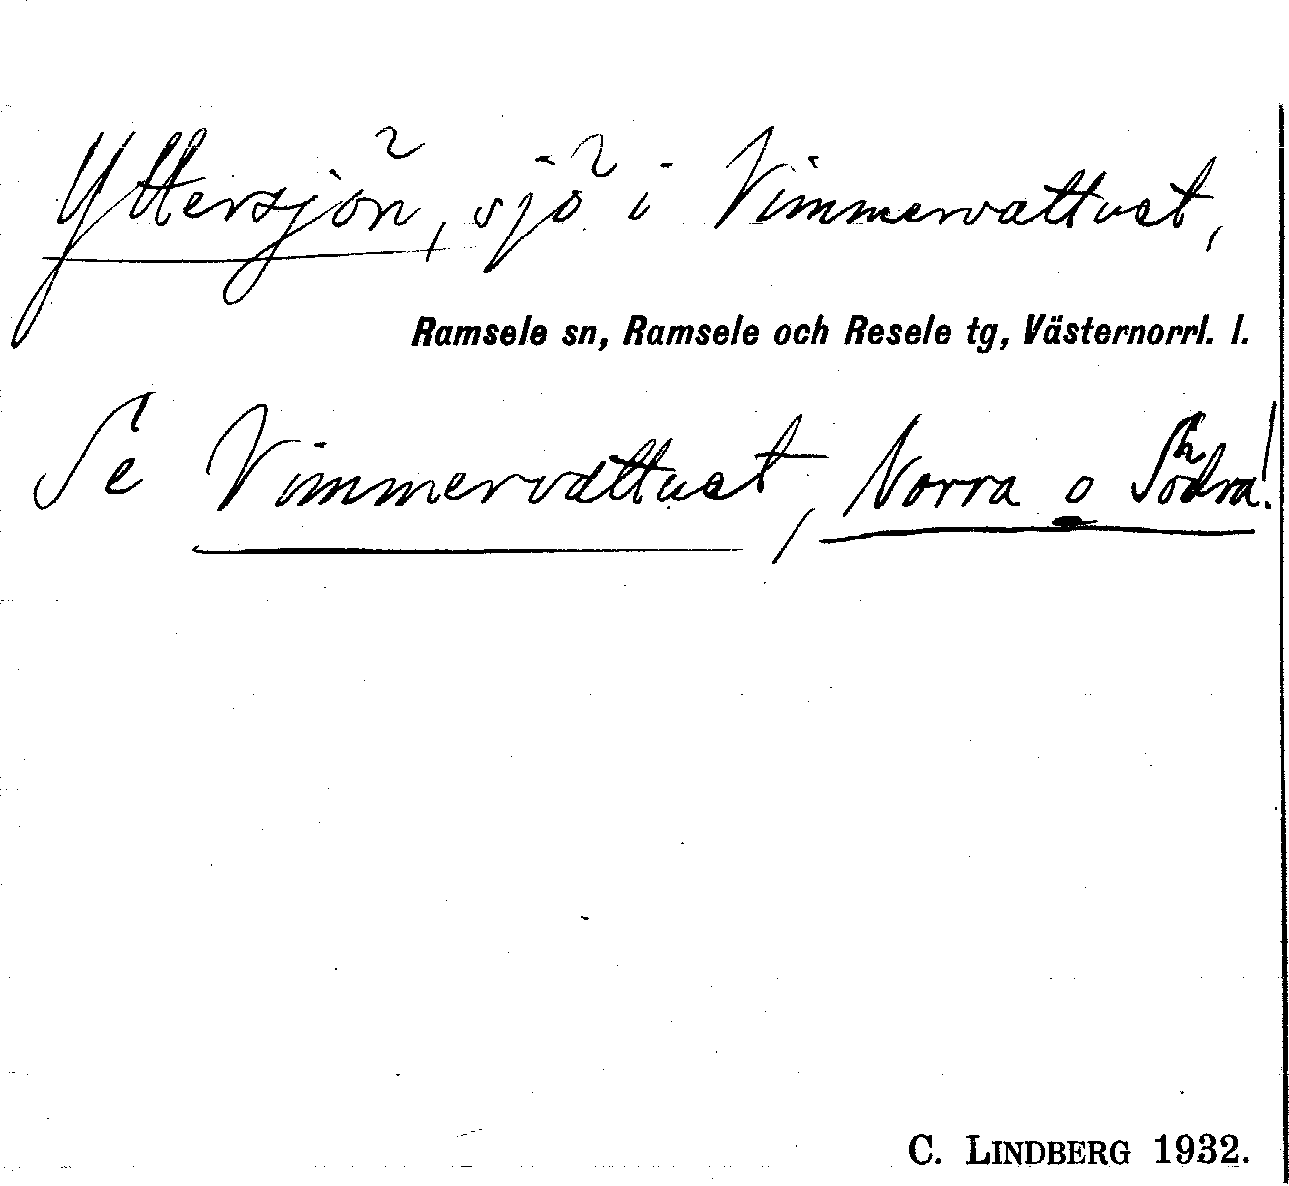 Yttersjön, sjö i Vimmervattnet,
Ramsele sn, Ramsele och Resele tg, Västernorrl. l.
Se Vimmervattnet, Norra o Södra!
C. LINDBERG 1932.